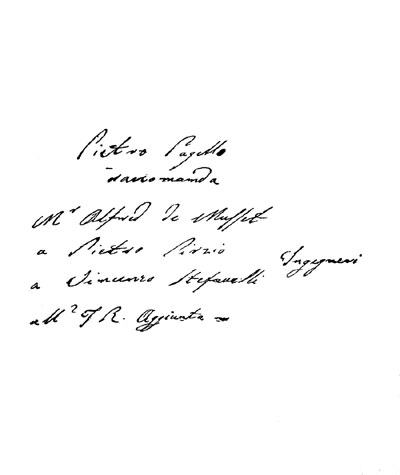 Pietro Pagello
raccomanda
Mr Alfred De Musset
a Pietro Pinzio
a Vincenzo Stefanelli Ingegneri
a Mr J. R. Aggiunta